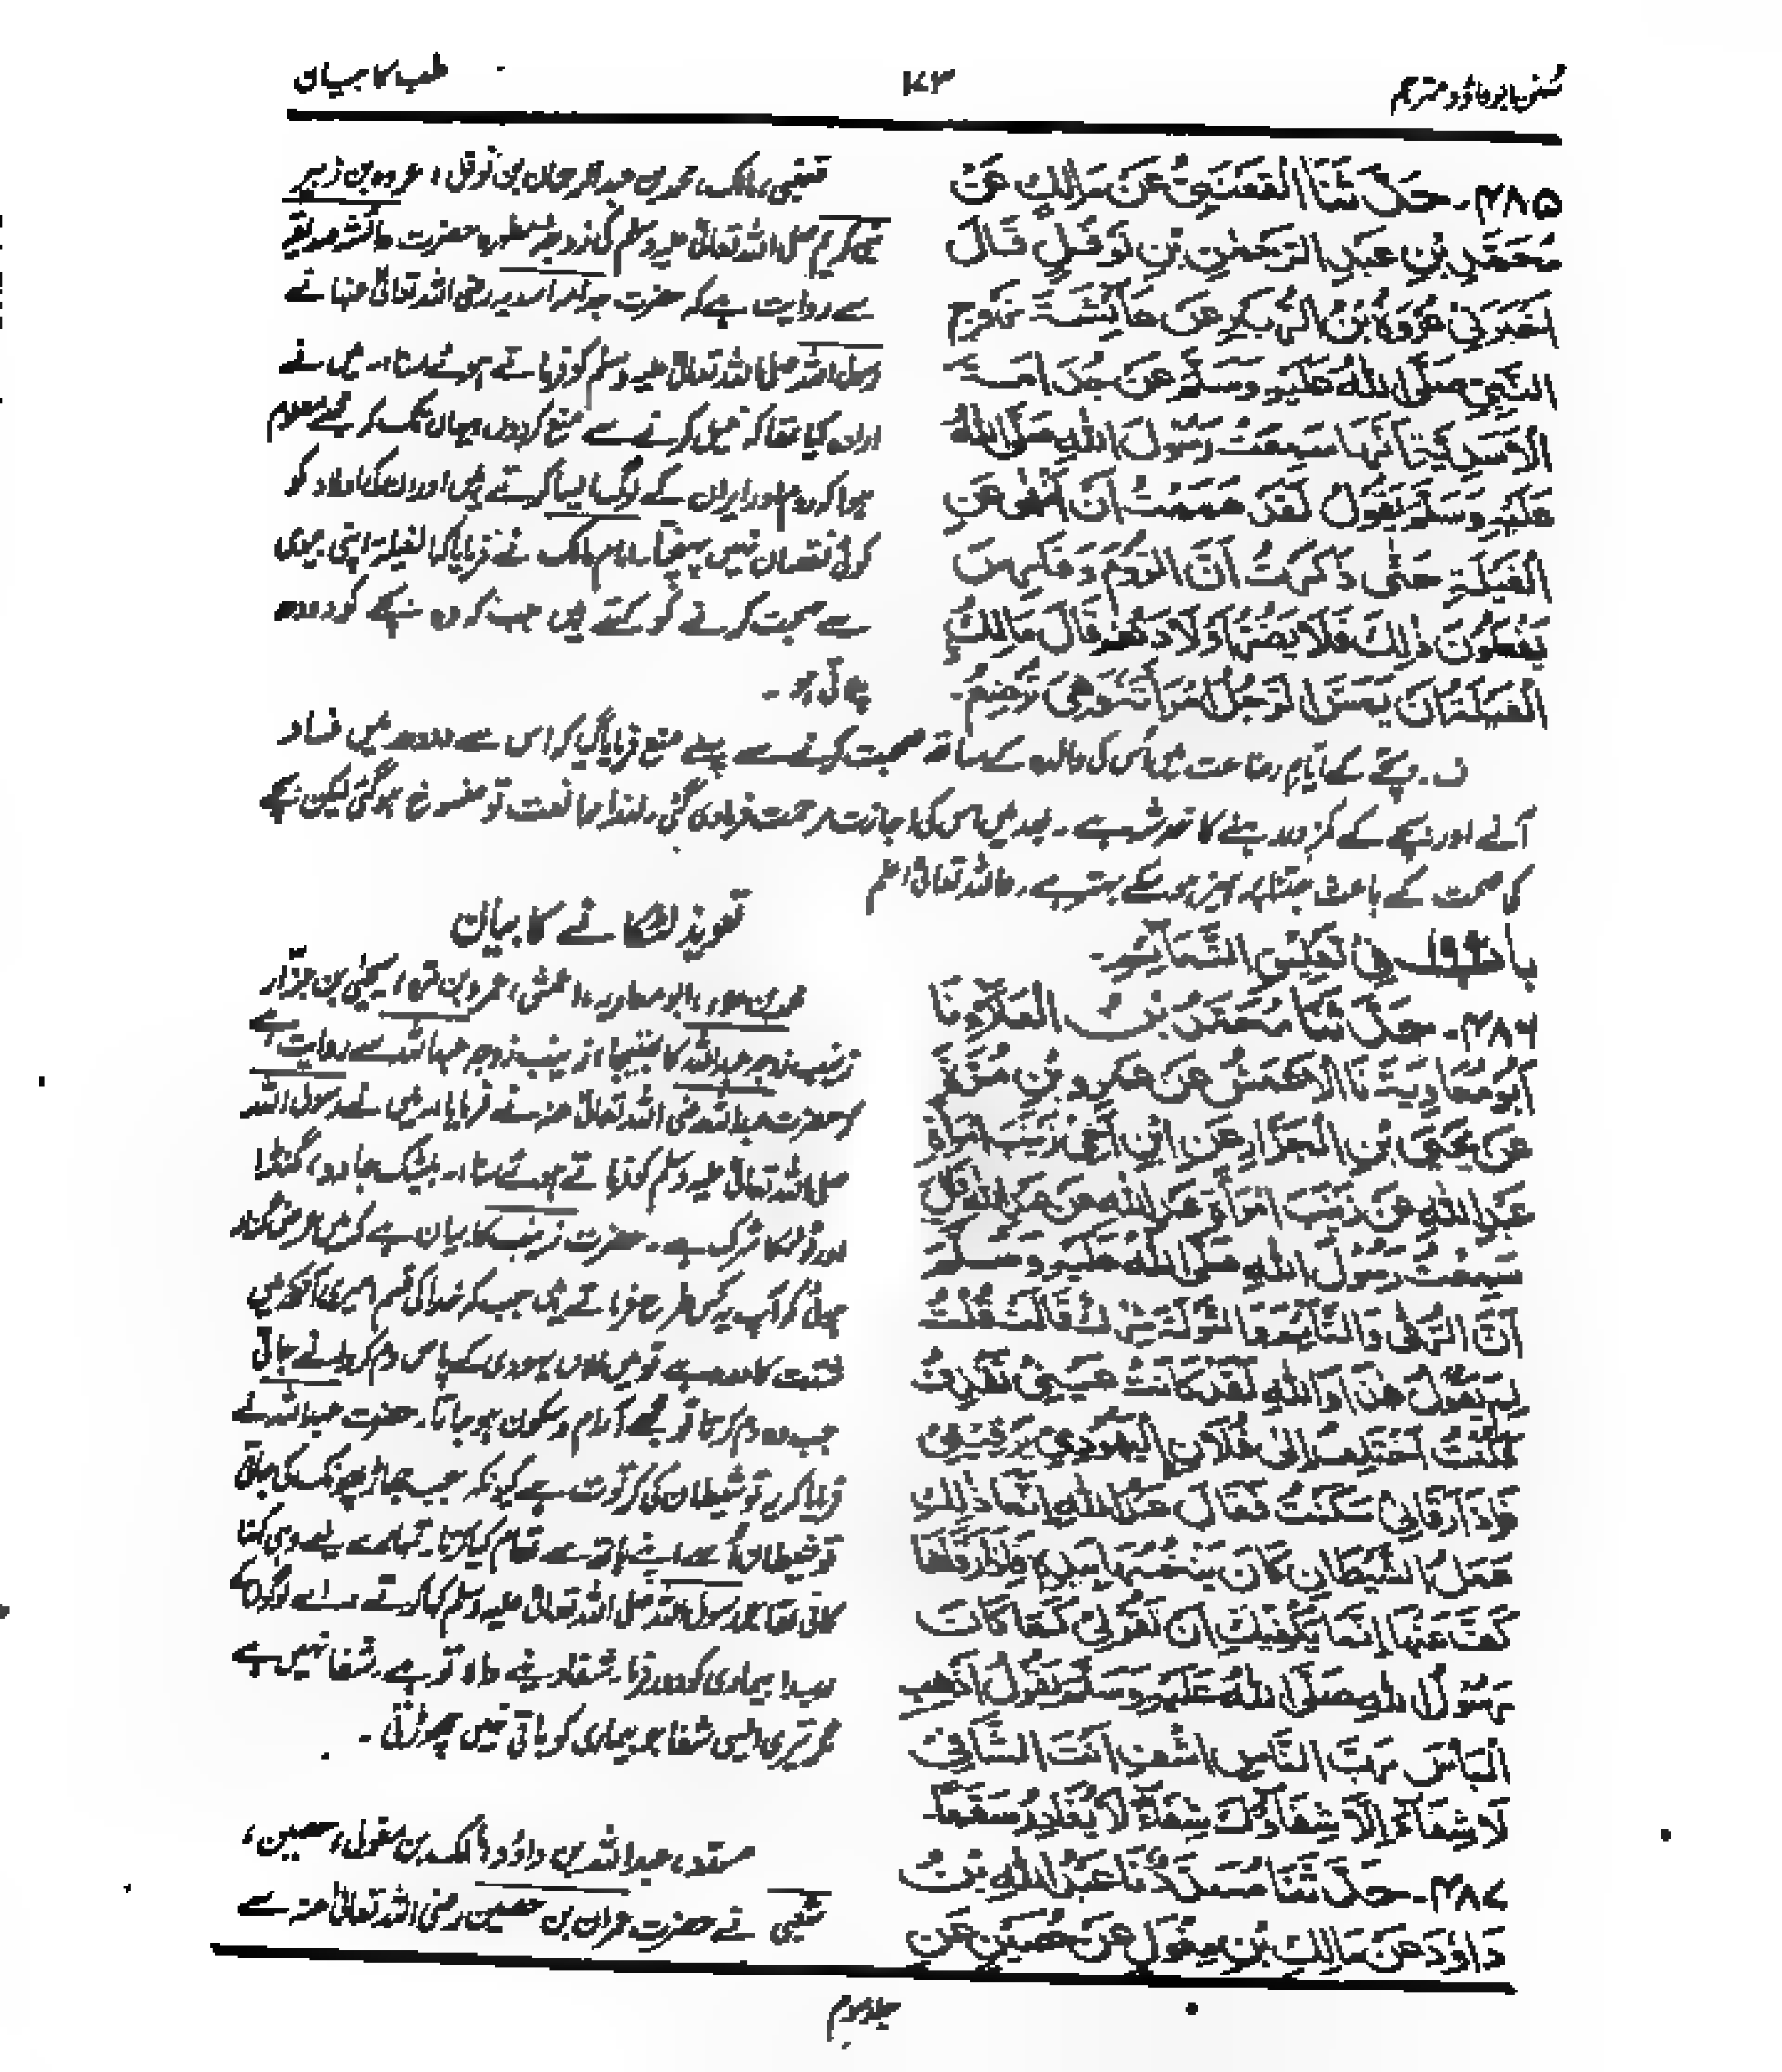 سنن ابوداؤد مترجم
۱۷۳
طب کا بیان
۴۸۵۔ حَدَّثَنَا الْقَعْنَبِيُّ عَنْ مَالِكٍ عَنْ
مُحَمَّدِ بْنِ عَبْدِ الرَّحْمٰنِ بْنِ نَوْفَلٍ قَالَ
أَخْبَرَنِي عُرْوَةُ بْنُ الزُّبَيْرِ عَنْ عَائِشَةَ زَوْجِ
النَّبِيِّ صَلَّى اللهُ عَلَيْهِ وَسَلَّمَ عَنْ جُدَامَةَ
الْأَسَدِيَّةِ أَنَّهَا سَمِعَتْ رَسُولَ اللهِ صَلَّى اللهُ
عَلَيْهِ وَسَلَّمَ يَقُولُ لَقَدْ هَمَمْتُ أَنْ أَنْهٰى عَنِ
الْغِيلَةِ حَتّٰى ذَكَرْتُ أَنَّ الرُّومَ وَفَارِسَ
يَفْعَلُونَ ذٰلِكَ فَلَا يَضُرُّ أَوْلَادَهُمْ قَالَ مَالِكٌ
الْغِيلَةُ أَنْ يَمَسَّ الرَّجُلُ امْرَأَتَهُ وَهِيَ تُرْضِعُ۔
قعنبی، مالک، محمد بن عبدالرحمان بن نوفل، عروہ بن زبیر
نبی کریم صلی اللہ تعالیٰ علیہ وسلم کی زوجہ مطہرہ حضرت عائشہ صدیقہ
سے روایت ہے کہ حضرت جدامہ اسدیہ رضی اللہ تعالیٰ عنہا نے
رسول اللہ صلی اللہ تعالیٰ علیہ وسلم کو فرماتے ہوئے سنا۔ میں نے
ارادہ کیا تھا کہ غیل کرنے سے منع کردوں یہاں تک کہ مجھے معلوم
ہوا کہ روم اور ایران کے لوگ ایسا کرتے ہیں اور ان کی اولاد کو
کوئی نقصان نہیں پہنچتا۔ امام مالک نے فرمایا کہ الغیلہ اپنی بیوی
سے صحبت کرنے کو کہتے ہیں جب کہ وہ بچے کو دودھ
پلاتی ہو۔
ف۔ بچے کے ایام رضاعت میں اس کی والدہ کے ساتھ صحبت کرنے سے پہلے منع فرمایا گیا کہ اس سے دودھ میں فساد
آنے اور بچے کے کمزور رہنے کا خدشہ ہے۔ بعد میں اس کی اجازت مرحمت فرما دی گئی۔ لہٰذا ممانعت تو منسوخ ہو گئی لیکن بچے
کی صحت کے باعث جتنا پرہیز ہو سکے بہتر ہے۔ واللہ تعالیٰ اعلم
باب ۱۹۲ فِي تَعْلِيقِ التَّمَائِمِ۔
تعویذ لٹکانے کا بیان
۴۸۶۔ حَدَّثَنَا مُحَمَّدُ بْنُ الْعَلَاءِ نَا
أَبُو مُعَاوِيَةَ نَا الْأَعْمَشُ عَنْ عَمْرِو بْنِ مُرَّةَ
عَنْ يَحْيَى بْنِ الْجَزَّارِ عَنِ ابْنِ أَخِي زَيْنَبَ امْرَأَةِ
عَبْدِ اللهِ عَنْ زَيْنَبَ امْرَأَةِ عَبْدِ اللهِ عَنْ عَبْدِ اللهِ قَالَ
سَمِعْتُ رَسُولَ اللهِ صَلَّى اللهُ عَلَيْهِ وَسَلَّمَ
أَنَّ الرُّقٰى وَالتَّمَائِمَ وَالتِّوَلَةَ شِرْكٌ قَالَتْ قُلْتُ
لِمَ تَقُولُ هٰذَا وَاللهِ لَقَدْ كَانَتْ عَيْنِي تَقْذِفُ
فَكُنْتُ أَخْتَلِفُ إِلٰى فُلَانٍ الْيَهُودِيِّ يَرْقِينِي
فَإِذَا رَقَانِي سَكَنَتْ فَقَالَ عَبْدُ اللهِ إِنَّمَا ذٰلِكَ
عَمَلُ الشَّيْطَانِ كَانَ يَنْخُسُهَا بِيَدِهِ فَإِذَا رَقَاهَا
كَفَّ عَنْهَا إِنَّمَا يَكْفِيكِ أَنْ تَقُولِي كَمَا كَانَ
رَسُولُ اللهِ صَلَّى اللهُ عَلَيْهِ وَسَلَّمَ يَقُولُ أَذْهِبِ
الْبَأْسَ رَبَّ النَّاسِ اشْفِ أَنْتَ الشَّافِي
لَا شِفَاءَ إِلَّا شِفَاؤُكَ شِفَاءً لَا يُغَادِرُ سَقَمًا
محمد بن علاء، ابو معاویہ، اعمش، عمرو بن مرہ، یحییٰ بن جزار
زینب زوجہ عبداللہ کا بھتیجا، زینب زوجہ عبداللہ سے روایت ہے
کہ حضرت عبداللہ رضی اللہ تعالیٰ عنہ نے فرمایا۔ میں نے رسول اللہ
صلی اللہ تعالیٰ علیہ وسلم کو فرماتے ہوئے سنا۔ بیشک جادو، گنڈا
اور ٹوٹکا شرک ہے۔ حضرت زینب کا بیان ہے کہ میں عرض گزار
ہوئی کہ آپ یہ کس طرح فرماتے ہیں جب کہ خدا کی قسم میری آنکھ میں
شدت کا درد ہے تو میں فلاں یہودی کے پاس دم کروانے جاتی
جب وہ دم کرتا تو مجھے آرام و سکون ہو جاتا۔ حضرت عبداللہ نے
فرمایا کہ یہ تو شیطان کی کرتوت ہے کیونکہ جب جھاڑ پھونک کی جاتی
تو شیطان اسے اپنے ہاتھ سے تھام لیا کرتا۔ تمہارے لیے وہی کہنا
کافی تھا جو رسول اللہ صلی اللہ تعالیٰ علیہ وسلم کہا کرتے۔ اے لوگوں کے
رب! بیماری کو دور فرما۔ شفا دینے والا تو ہے۔ شفا نہیں ہے
مگر تیری ایسی شفا جو بیماری کو باقی نہیں چھوڑتی۔
۴۸۷۔ حَدَّثَنَا مُسَدَّدٌ نَا عَبْدُ اللهِ بْنُ
دَاوُدَ عَنْ مَالِكِ بْنِ مِغْوَلٍ عَنْ حُصَيْنٍ عَنِ
مسدد، عبداللہ بن داؤد، مالک بن مغول، حصین،
شعبی نے حضرت عمران بن حصین رضی اللہ تعالیٰ عنہ سے
جلد سوم